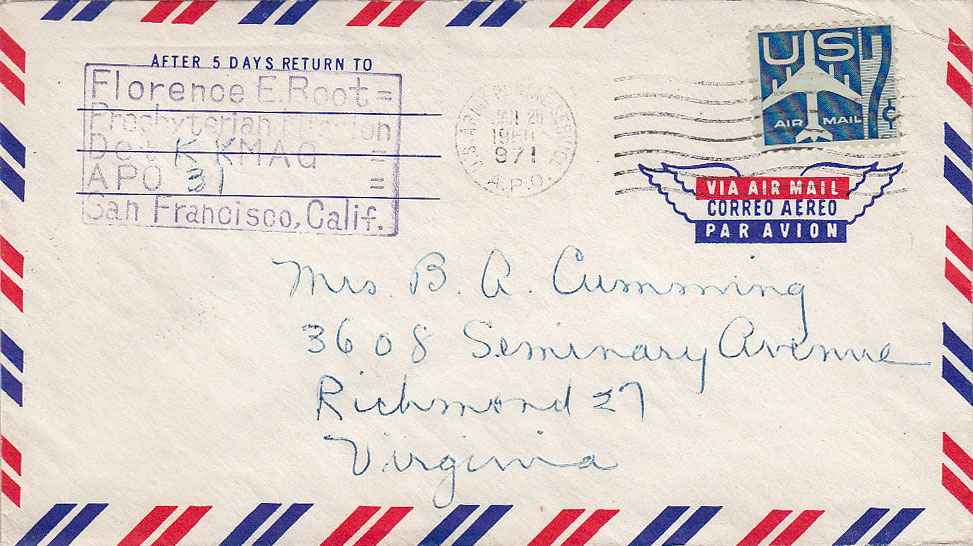 AFTER 5 DAYS RETURN TO
Florence E. Root =
Presbyterian Mission
Det K KMAG =
APO 31 =
San Francisco, Calif.
U.S. ARMY
JAN
971
A.P.O.
US
7¢
AIR MAIL
VIA AIR MAIL
CORREO AEREO
PAR AVION
Mrs. B. A. Cumming
3608 Seminary Avenue
Richmond 27
Virginia